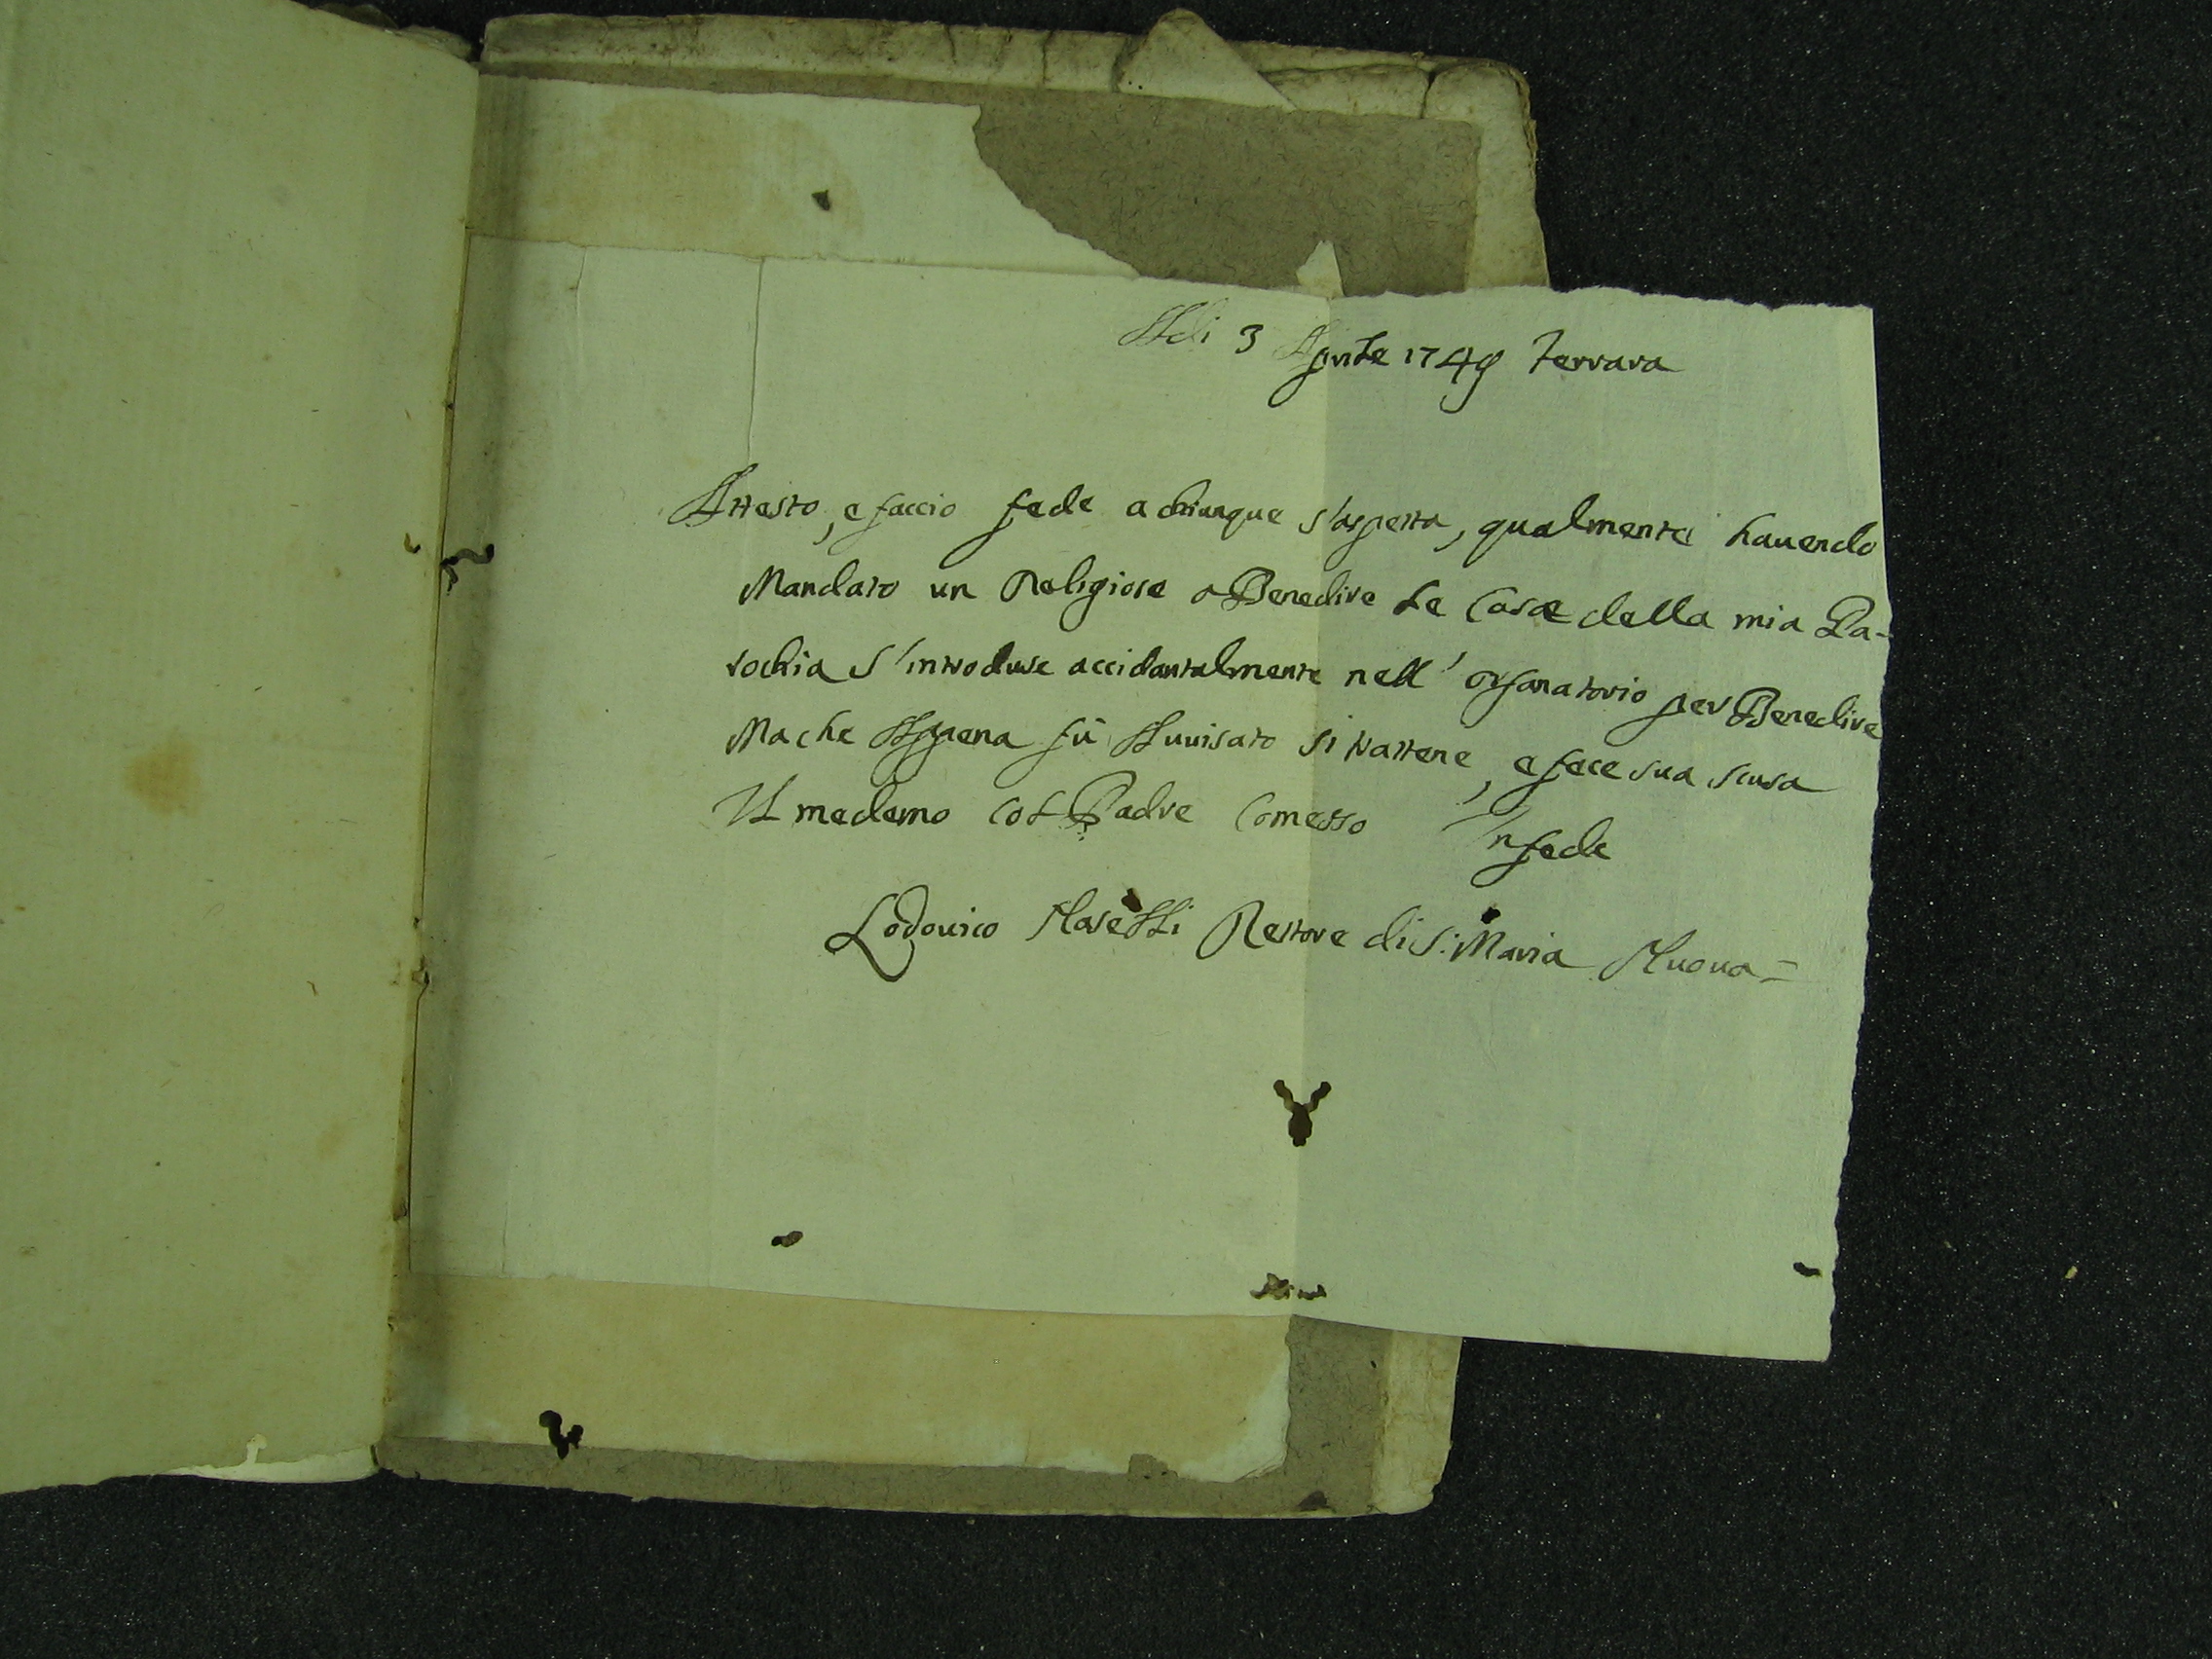 Adi 3 Aprile 1749 Ferrara
Attesto, e faccio fede a chiunque s'aspetta, qualmente havendo
Mandato un Religiose a Benedire le Case della mia Pa-
rochia s'introduse accidentalmente nell' orfanatorio per Benedire
Ma che Appena fù Auuisato si trattene, e fece sua scusa
Il medemo col Padre Comesso In fede
Lodouico Rettore di S: Maria Nuoua=